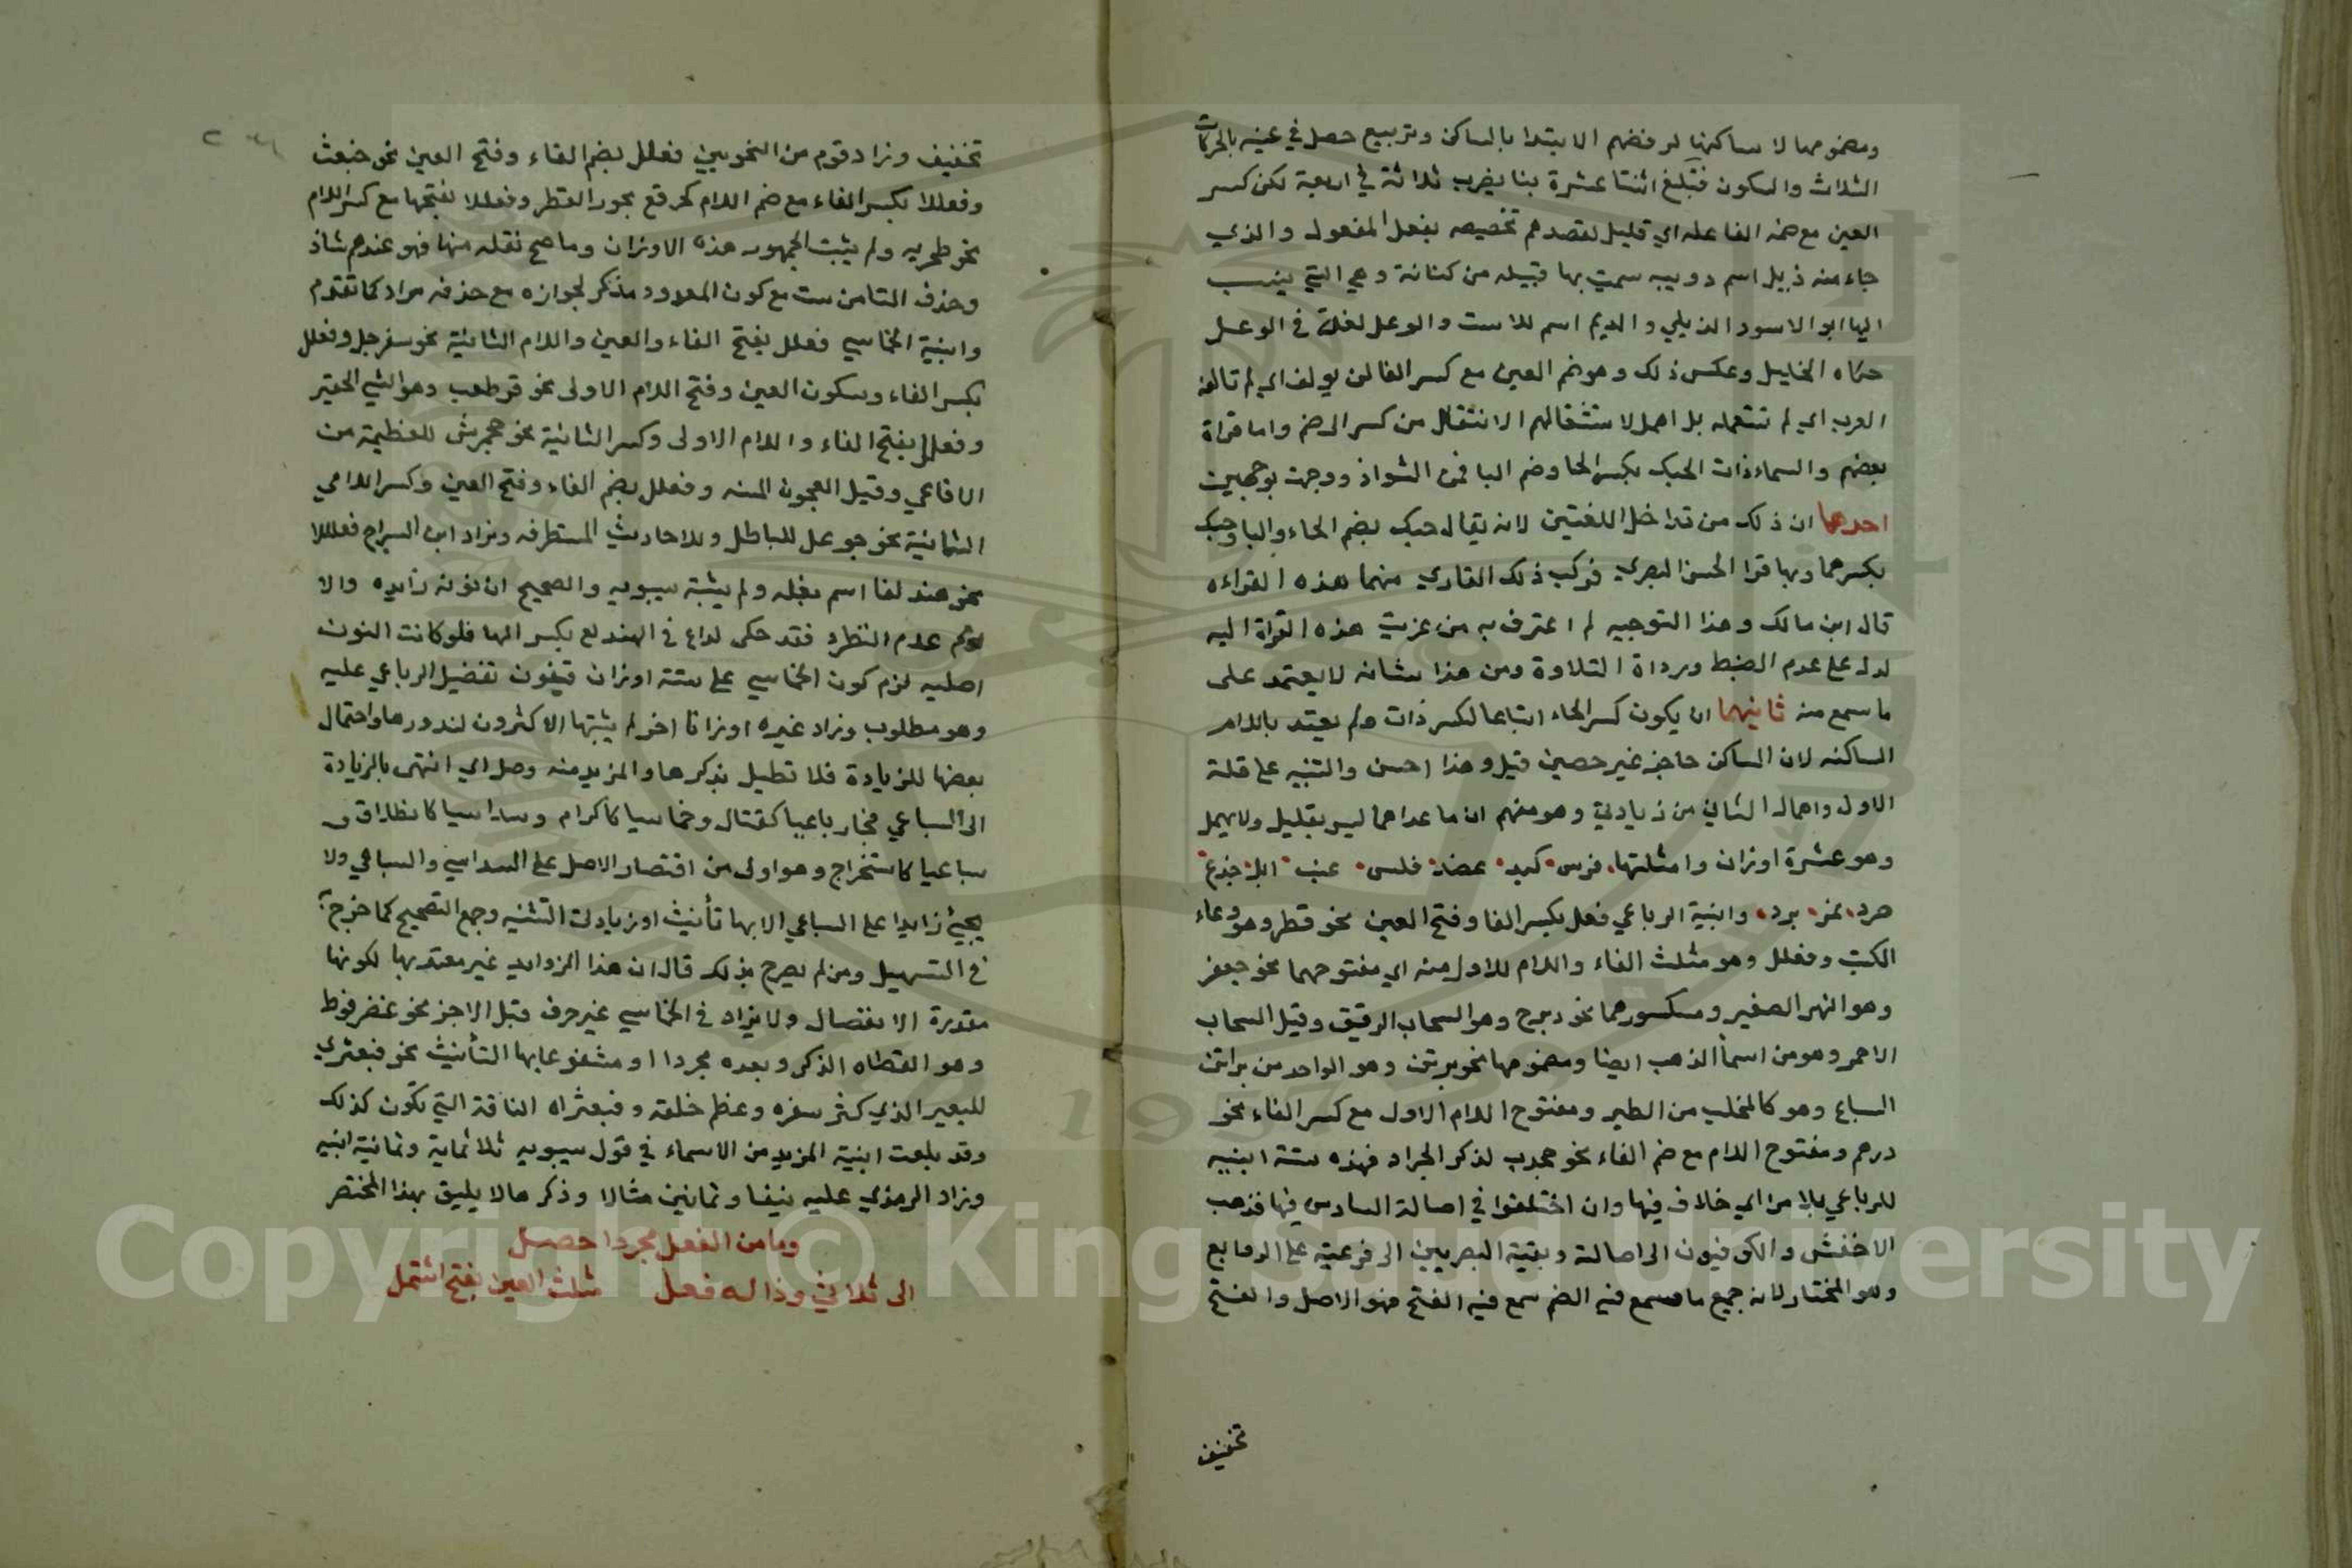 ومضمومها لا ساكنها لرفضهم الابتدا بالساكن وتربيع حصل في عينه بالحركات
الثلاث والسكون فتبلغ اثنتا عشرة بنا بضرب ثلاثة في اربعة لكن كسر
العين مع ضمه الفا عله اي قليل لقصدهم تخصيصه بفعل المفعول والذي
جاء منه دئل اسم دويبه سميت بها قبيله من كنانة وهي التي ينسب
اليها ابو الاسود الديلي والديم اسم للاست والوعل لغة في الوعل
حكاه الخليل وعكس ذلك وهو ضم العين مع كسر الفا لن يولف اي لم تالفه
العرب اي لم تستعمله بل اهمل لاستثقالهم الانتقال من كسر الى ضم واما قراة
بعضهم والسماء ذات الحبك بكسر الحا وضم البا فمن الشواذ ووجهت بوجهين
احدهما ان ذلك من تداخل اللغتين لانه يقال حبك بضم الحاء والبا وحبك
بكسرهما وبها قرا الحسن البصري فركب ذلك القاري منهما هذه القراءه
قال ابن مالك وهذا التوجيه لم اعترف به من عزيت هذه القراة اليه
لدل على عدم الضبط ورداة التلاوة ومن هذا شانه لا يعتمد على
ما سمع منه ثانيهما ان يكون كسر الحاء اتباعا لكسر ذات ولم يعتد باللام
الساكنه لان الساكن حاجز غير حصين قيل وهذا احسن والتنبيه على قلة
الاول واهمال الثاني من زيادتي وهو مفهم ان ما عداهما ليس بقليل ولا مهمل
وهو عشرة اوزان وامثلتها فرس كبد عضد فلس عنب ابل جذع
صرد نمر برد وابنية الرباعي فعل بكسر الفا وفتح العين نحو قطر وهو وعاء
الكتب وفعلل وهو مثلث الفاء واللام للاول منه اي مفتوحهما نحو جعفر
وهو النهر الصغير ومكسورهما نحو زبرج وهو السحاب الرقيق وقيل السحاب
الاحمر وهو من اسما الذهب ايضا ومضمومها نحو برثن وهو الواحد من براثن
السباع وهو كالمخلب من الطير ومفتوح اللام الاول مع كسر الفاء نحو
درهم ومفتوح اللام مع ضم الفاء نحو جحدب لذكر الجراد فهذه ستة ابنيه
للرباعي خلاف فيها وان اختلفوا في اصالة السادس فيها فذهب
الاخفش والكوفيون الى اصالة وبقية البصريين الى فرعيته على الرابع
وهو المختار لان جميع ما سمع فيه الضم سمع فيه الفتح فهو الاصل والفتح
تخفيف
تخفيف وزاد قوم من النحويين فعلل بضم الفاء وفتح العين نحو خبعث
وفعللا بكسر الفاء مع ضم اللام كخرفع بجود القطر وفعللا بفتحها مع كسر اللام
نحو طحربه ولم يثبت الجمهور هذه الاوزان وما صح نقله منها فهو عندهم شاذ
وحذف التا من ست مع كون المعدود مذكر لجوازه مع حذفه مراد كما تقدم
وابنية الخماسي فعلل بفتح الفاء والعين واللام الثانية نحو سفرجل وفعلل
بكسر الفاء وسكون العين وفتح اللام الاولى نحو قرطعب وهو الشي الحقير
وفعلل بفتح الفاء واللام الاولى وكسر الثانية نحو جحمرش للعظيمة من
الافاعي وقيل العجوز المسنه وفعلل بضم الفاء وفتح العين وكسر اللام
الثانية نحو للباطل وللاحاديث المستطرفه وزاد ابن السراج فعلللا
نحو هندلعا اسم بقله ولم يثبته سيبويه والصحيح ان نونه زايده والا
لزم عدم النظير فقد حكى كراع في الهندلع بكسر الها فلو كانت النون
اصليه لزم كون الخماسي على ستة اوزان فيفوت تفضيل الرباعي عليه
وهو مطلوب وزاد غيره اوزانا اخر لم يثبتها الاكثرون لندورها واحتمال
بعضها للزيادة فلا نطيل بذكرها والمزيد منه وصل اي انتهى بالزيادة
الى السباعي فجا رباعيا كقتال وخماسيا كاكرام وسداسيا كانطلاق و
سباعيا كاستخراج وهو اولى من اقتصار الاصل على السداسي والسباعي ولا
يجيئ زايدا على السباعي الا بها تأنيث او زيادت التثنيه وجمع التصحيح كما خرج
في التسهيل ومن لم يصرح بذلك قال ان هذا الزوايد غير معتد بها لكونها
مقدرة الانفصال ولا يزاد في الخماسي غير حرف قبل الاخر نحو عضرفوط
وهو العظاه الذكر وبعده مجردا او مشفوعا بها التأنيث نحو قبعثرى
للبعير الذي كثر شعره وعظم خلقه وقبعثراه الناقة التي تكون كذلك
وقد بلغت ابنية المزيد من الاسماء في قول سيبويه ثلاثماية وثمانية ابنيه
وزاد الزبيدي عليه نيفا وثمانين مثالا وذكرها لا يليق بهذا المختصر
وما من الفعل مجردا حصل
الى ثلاثي وذا له فعل مثلث العين بفتح اشتمل
Copyright © King Saud University
1957